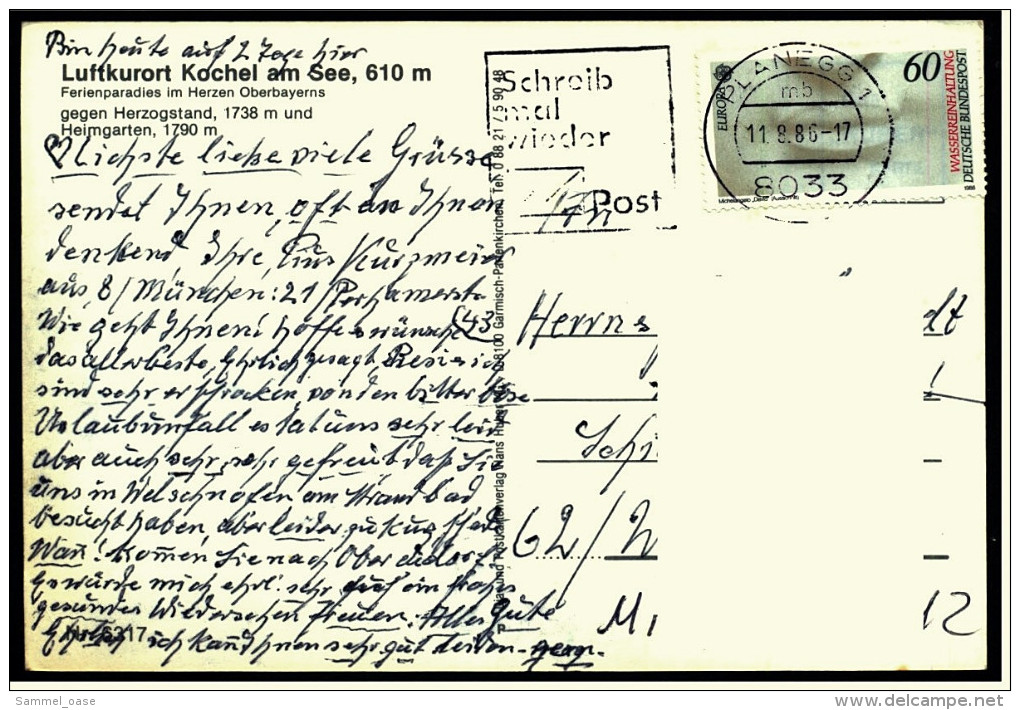 Bin heute auf 2 Tage hier
Luftkurort Kochel am See, 610 m
Ferienparadies im Herzen Oberbayerns
gegen Herzogstand, 1738 m und
Heimgarten, 1790 m
liebe viele Grüsse
sendet Ihnen, oft an Ihnen
denkend, Ihre, Pius Kurzmeier
aus, 8/München: 21/
Wie geht Ihnen! hoffe wünsche (43
das allerbeste, Ehrlich gesagt, Resi ich
sind sehr erschrocken, von den bitter böse
Urlaubunfall es tat uns sehr leid
aber auch sehr, sehr gefreut daß Sie
uns in Welschnofen am Strandbad
besucht haben, aber leider zu kurz
Wan! kommen Sie nach
würde mich ehrl. sehr auf ein frohes
gesundes Wiedersehen freuen. Alles Gute
ich kan Ihnen sehr gut leiden
317
Schreib
mal
wieder
Post
An
PLANEGG 1
mb
11.8.86-17
8033
EUROPA
60
WASSERREINHALTUNG
DEUTSCHE BUNDESPOST
1986
Postkartenverlag Hans Huber 8100 Garmisch-Partenkirchen, Tel. 0 88 21 / 5 90 48
Herrn
dt
Schi
62/W
M
12
Sammel_oase